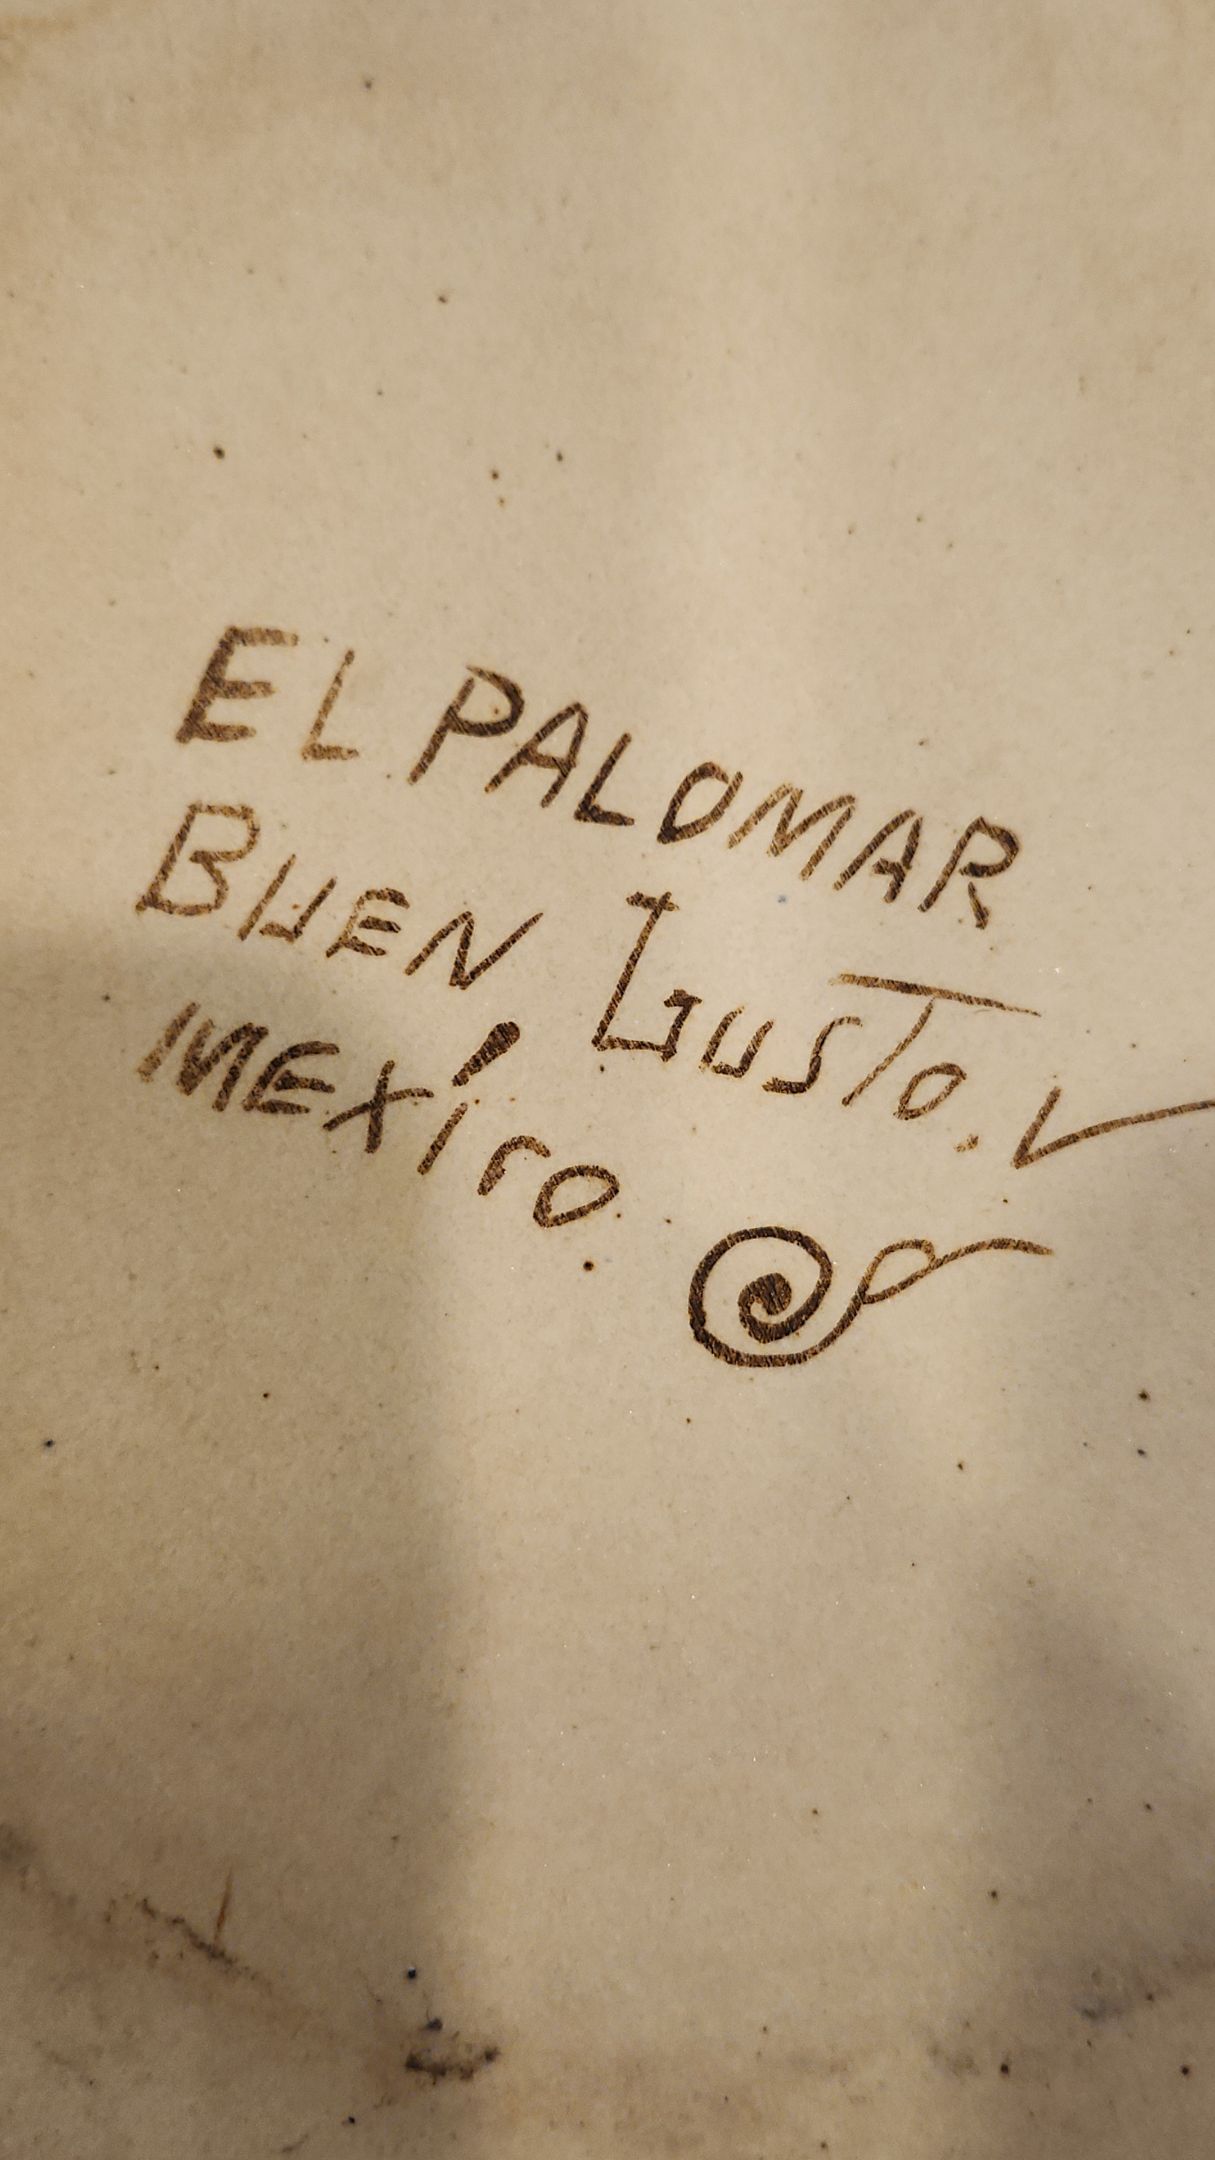 EL PALOMAR
BUEN GUSTO.
MÉXICO